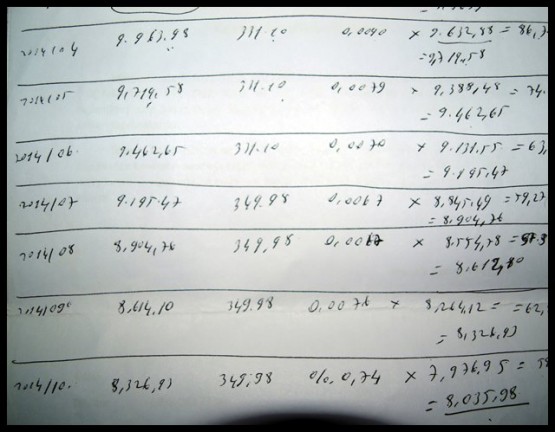 2014/04 9.963.98 331.10 0,0090 × 9.632,88 = 86,7
= 9,719,58
2014/05 9,719,58 331.10 0,0079 × 9,388,48 = 74.
= 9.462,65
2014/06 9.462,65 331.10 0,0070 × 9.131,55 = 63,
= 9.195,47
2014/07 9.195.47 349.98 0,0067 × 8,845,49 = 59,27
= 8,904,76
2014/08 8,904,76 349,98 0,0067 × 8.554,78 =
= 8.612,80
8,614,10 349.98 0,0076 × 8,264,12 = = 62,
= 8,326,93
2014/10. 8,326,93 349,98 % 0,74 × 7,976,95 =
= 8,035,98